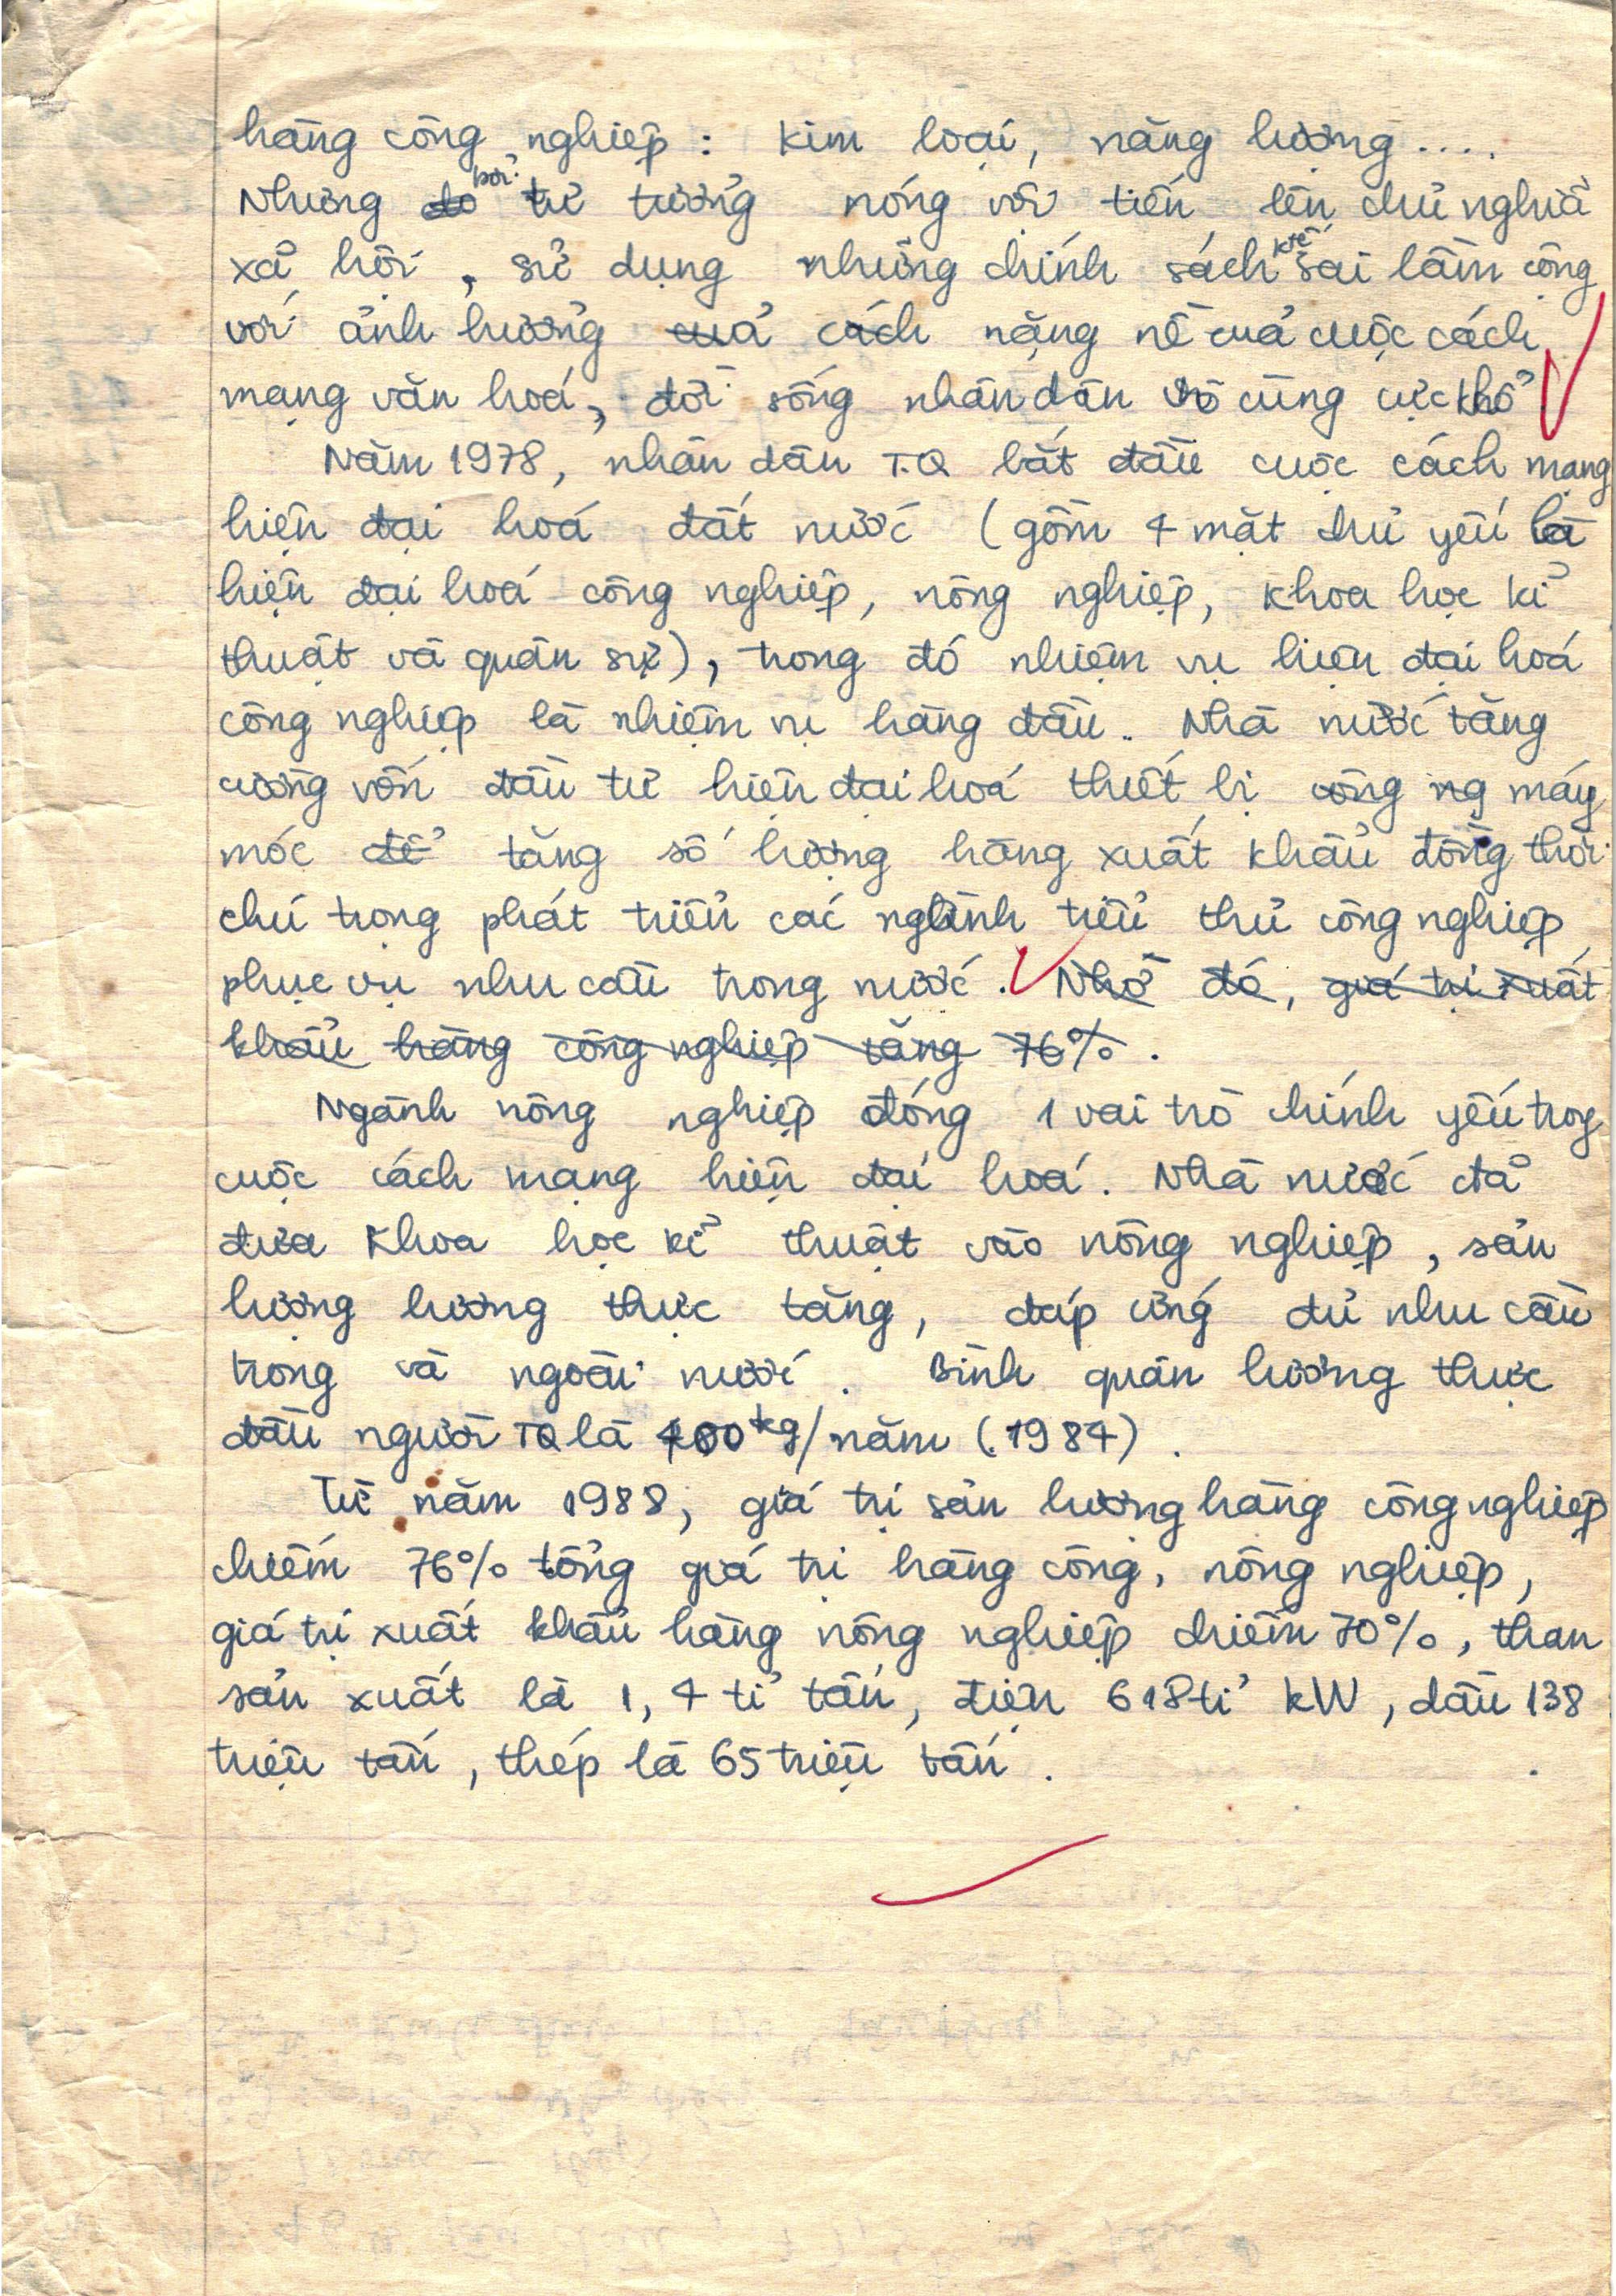 hàng công nghiệp : kim loại, năng lượng ....
Nhưng do bởi tư tưởng nóng vội tiến lên chủ nghĩa
xã hội , sử dụng những chính sách ktế sai lầm cộng
với ảnh hưởng của cách nặng nề của cuộc cách
mạng văn hoá, đời sống nhân dân vô cùng cực khổ
Năm 1978, nhân dân T.Q bắt đầu cuộc cách mạng
hiện đại hoá đất nước (gồm 4 mặt chủ yếu là
hiện đại hoá công nghiệp, nông nghiệp, khoa học kĩ
thuật và quân sự), trong đó nhiệm vụ hiện đại hoá
công nghiệp là nhiệm vụ hàng đầu. Nhà nước tăng
cường vốn đầu tư hiện đại hoá thiết bị công ng máy
móc để tăng số lượng hàng xuất khẩu đồng thời
chú trọng phát triển các nghành tiểu thủ công nghiệp
phục vụ nhu cầu trong nước. Nhờ đó, giá trị xuất
khẩu hàng công nghiệp tăng 76%.
Ngành nông nghiệp đóng 1 vai trò chính yếu trong
cuộc cách mạng hiện đại hoá. Nhà nước đã
đưa khoa học kĩ thuật vào nông nghiệp, sản
lượng lương thực tăng, đáp ứng đủ nhu cầu
trong và ngoài nước. Bình quân lương thực
đầu người TQ là 400kg/năm (1984).
Từ năm 1988, giá trị sản lượng hàng công nghiệp
chiếm 76% tổng giá trị hàng công, nông nghiệp,
giá trị xuất khẩu hàng nông nghiệp chiếm 70%, than
sản xuất là 1,4 tỉ tấn, điện 618 tỉ kW, dầu 138
triệu tấn, thép là 65 triệu tấn.